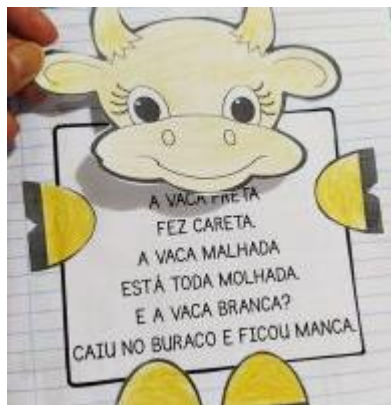 A VACA PRETA
FEZ CARETA.
A VACA MALHADA
ESTÁ TODA MOLHADA.
E A VACA BRANCA?
CAIU NO BURACO E FICOU MANCA.